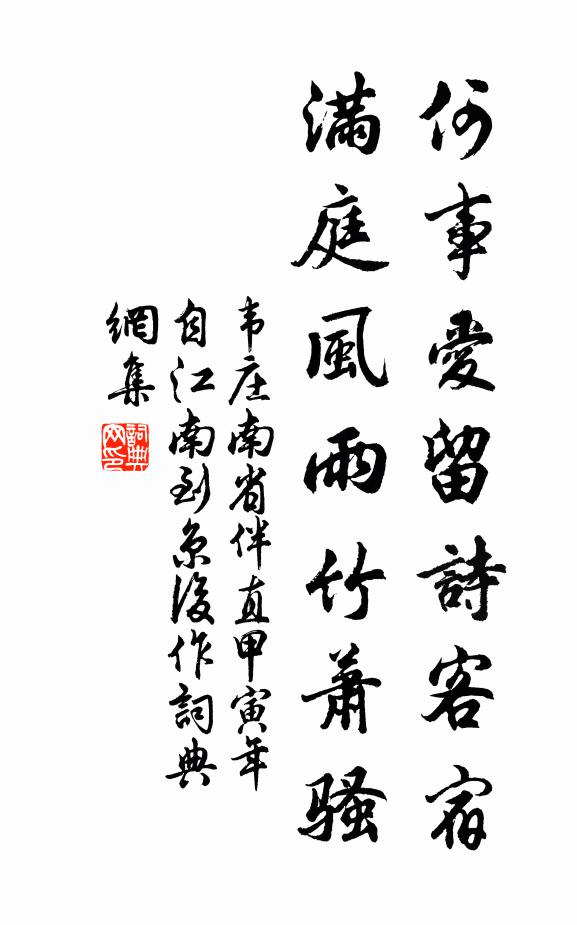 何事愛留詩客宿
滿庭風雨竹蕭騷
韦庄南省伴直甲寅年
自江南到京後作詞典
網集
詞典网印